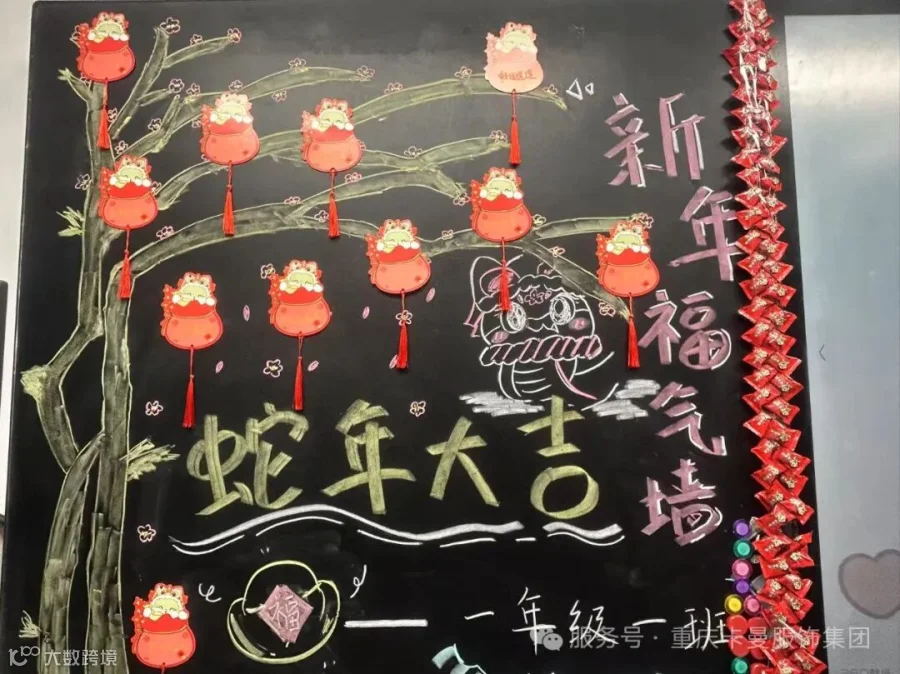 新年福气墙
蛇年大吉
福
一年级一班
服务号·重庆卡曼服饰集团
大数跨境